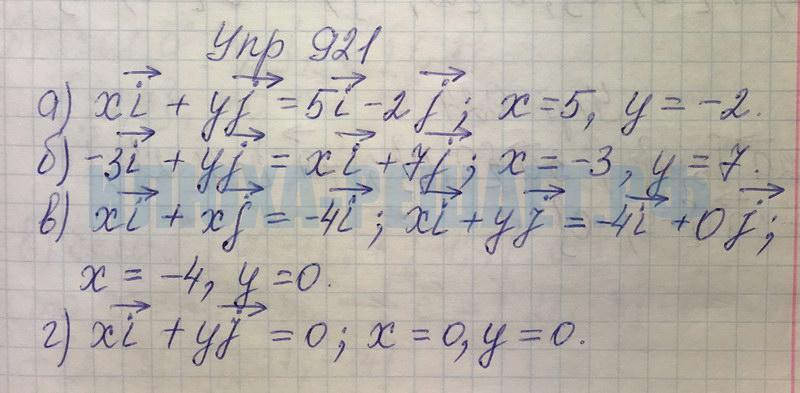 Упр 921
а) xi⃗ + yj⃗ = 5i⃗ - 2j⃗; x = 5, y = -2.
б) -3i⃗ + yj⃗ = xi⃗ + 7j⃗; x = -3, y = 7.
в) xi⃗ + xj⃗ = -4i⃗; xi⃗ + yj⃗ = -4i⃗ + 0j⃗;
x = -4, y = 0.
г) xi⃗ + yj⃗ = 0; x = 0, y = 0.